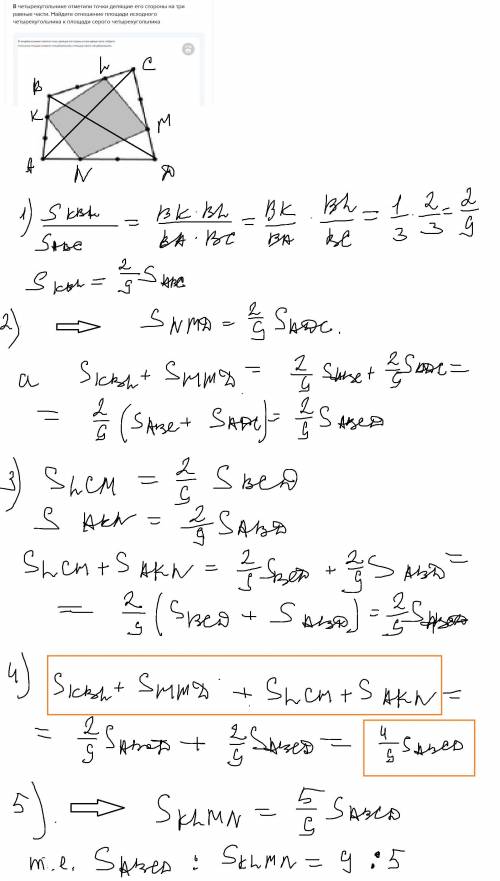 В четырехугольнике отметили точки делящие его стороны на три
равные части. Найдите отношение площади исходного
четырехугольника к площади серого четырехугольника
B L C
K M
A N D
1) S KBL / S ABC = BK · BL / BA · BC = BK / BA · BL / BC = 1/3 · 2/3 = 2/9
S KBL = 2/9 S ABC
2) ⇒ S NMD = 2/9 S ADC.
а S KBL + S NMD = 2/9 S ABC + 2/9 S ADC =
= 2/9 (S ABC + S ADC) = 2/9 S ABCD
3) S LCM = 2/9 S BCD
S AKN = 2/9 S ABD
S LCM + S AKN = 2/9 S BCD + 2/9 S ABD =
= 2/9 (S BCD + S ABD) = 2/9 S ABCD
4) S KBL + S NMD + S LCM + S AKN =
= 2/9 S ABCD + 2/9 S ABCD = 4/9 S ABCD
5). ⇒ S KLMN = 5/9 S ABCD
т.е. S ABCD : S KLMN = 9 : 5